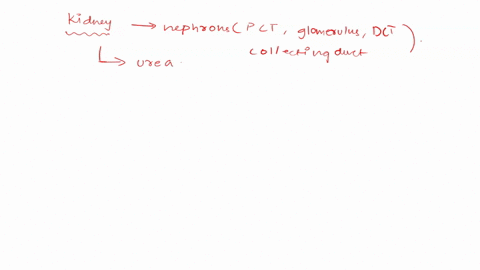 Kidney → nephrons (PCT, glomerulus, DCT
collecting duct).
↳ urea